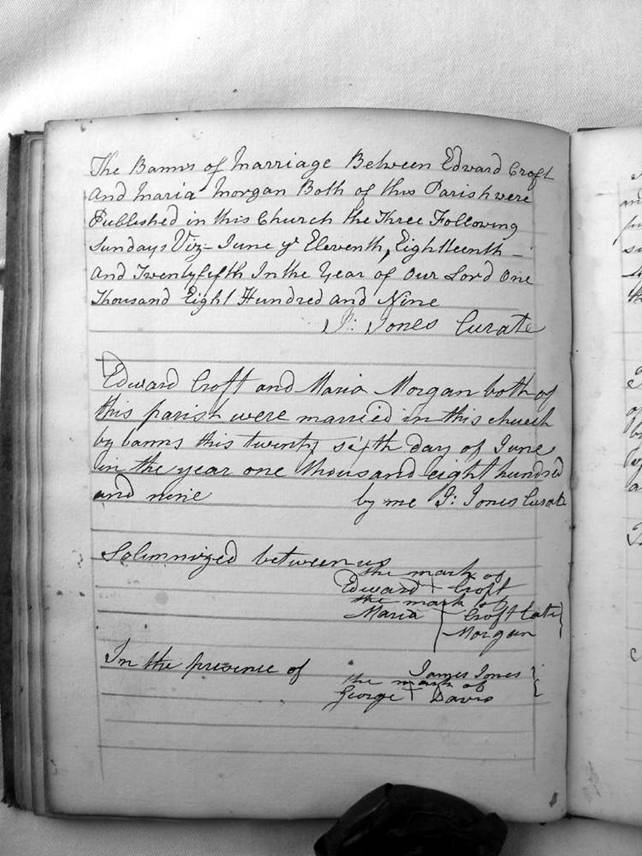 The Banns of Marriage Between Edward Croft
and Maria Morgan Both of this Parish were
Published in this Church the Three Following
Sundays Viz- June ye Eleventh, Eighteenth -
and Twentyfifth In the Year of Our Lord One
Thousand Eight Hundred and Nine
J: Jones Curate
Edward Croft and Maria Morgan both of
this parish were married in this church
by banns this twenty sixth day of June
in the year one thousand eight hundred
and nine by me J: Jones Curate
Solemnized between us
the mark of
Edward + Croft
the mark of
Maria Croft late
Morgan
In the presence of James Jones
the mark of
George + Davis